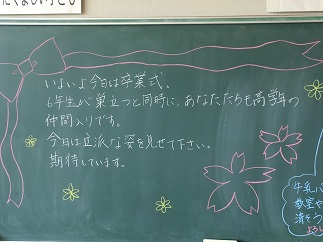 いよいよ今日は卒業式。
6年生が巣立つと同時に、あなたたちも高学年の
仲間入りです。
今日は立派な姿を見せて下さい。
期待しています。
牛乳パ
教室や
清そう